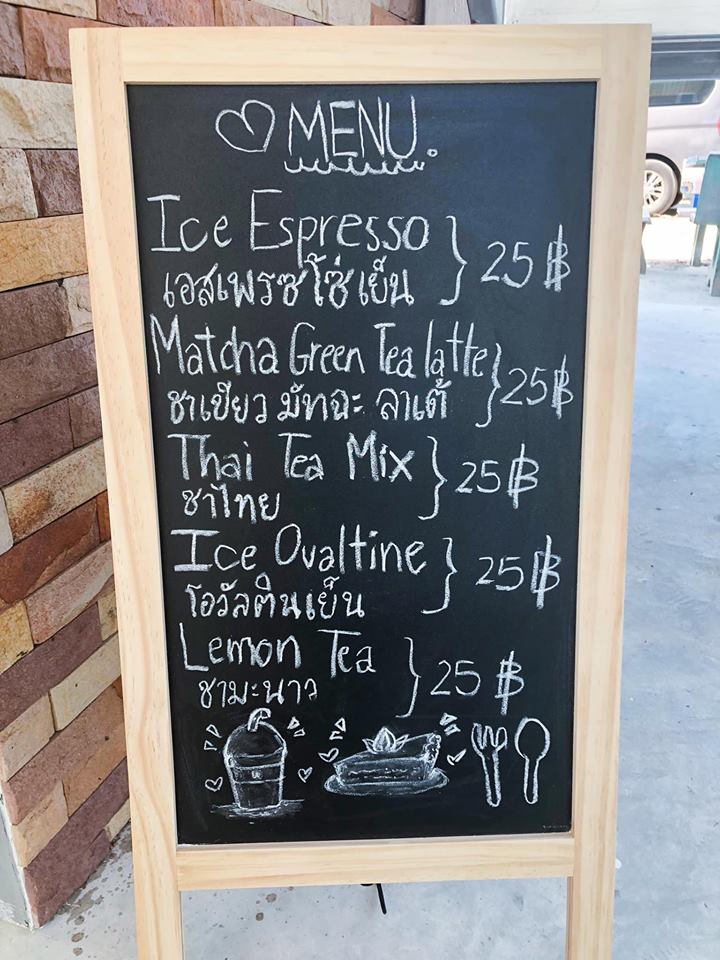 MENU.
Ice Espresso } 25 ฿
เอสเพรซโซ่เย็น
Matcha Green Tea latte } 25 ฿
ชาเขียว มัทฉะ ลาเต้
Thai Tea Mix } 25 ฿
ชาไทย
Ice Ovaltine } 25 ฿
โอวัลตินเย็น
Lemon Tea } 25 ฿
ชามะนาว